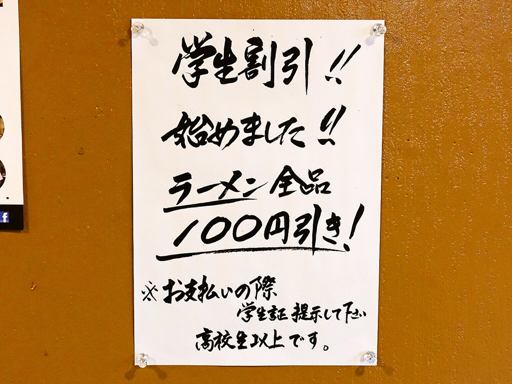 学生割引!!
始めました!!
ラーメン全品
100円引き!
※お支払いの際
学生証提示して下さい
高校生以上です。